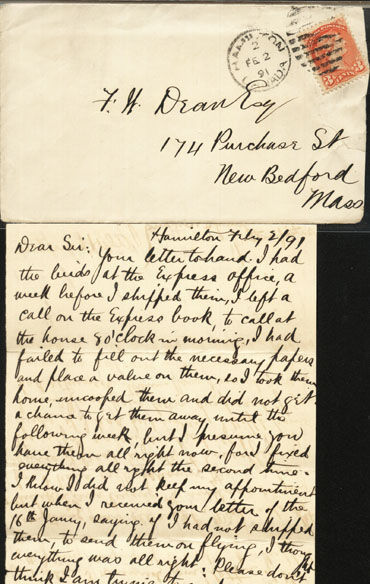 HAMILTON
2
FE 2
91
CANADA
3 CENTS 3
F. W. Dean Esq
174 Purchase St
New Bedford
Mass
Hamilton Feby 2/91
Dear Sir: Your letter to hand. I had
the birds at the Express office, a
week before I shipped them, I left a
call on the Express book, to call at
the house 9 o'clock in morning, I had
failed to fill out the necessary papers
and place a value on them, so I took them
home, uncooped them and did not get
a chance to get them away until the
following week, but I presume you
have them all right now, for I fixed
everything all right the second time.
I know I did not keep my appointment
but when I received your letter of the
16th Jany, saying if I had not shipped
them, to send them on flying, I thought
everything was all right. Please don't
think I am